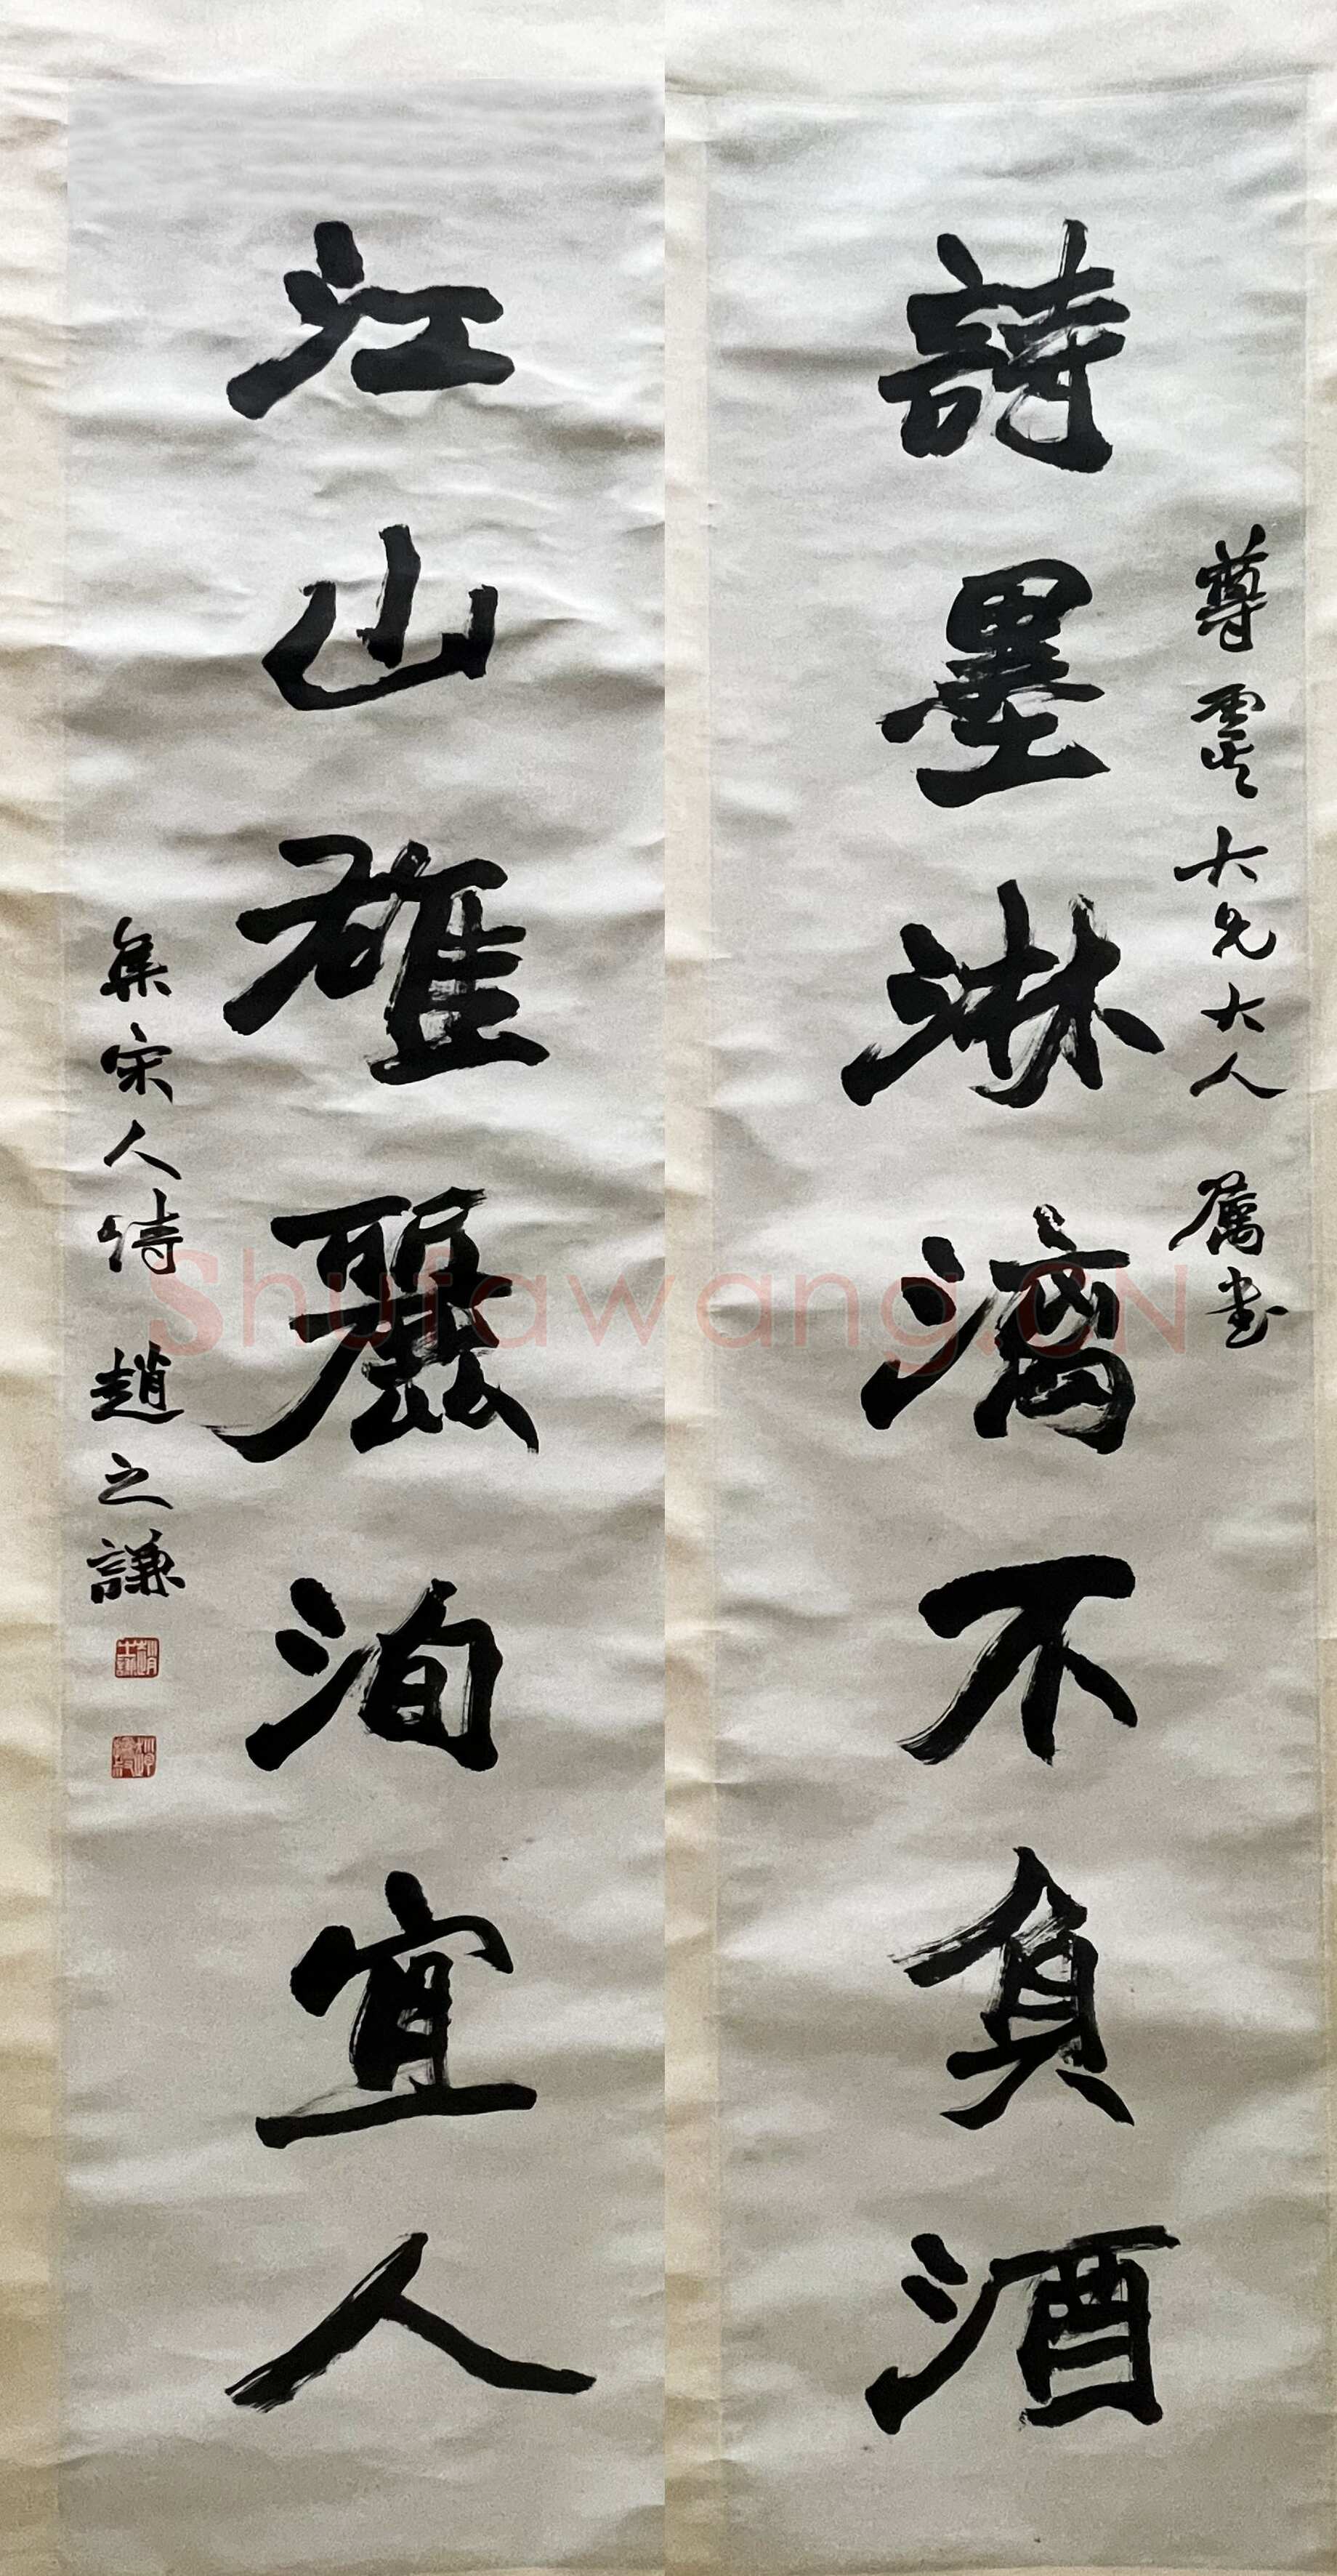 尊雲大兄大人屬書
詩墨淋漓不負酒
江山雄麗洵宜人
集宋人詩 趙之謙
Shufawang.CN